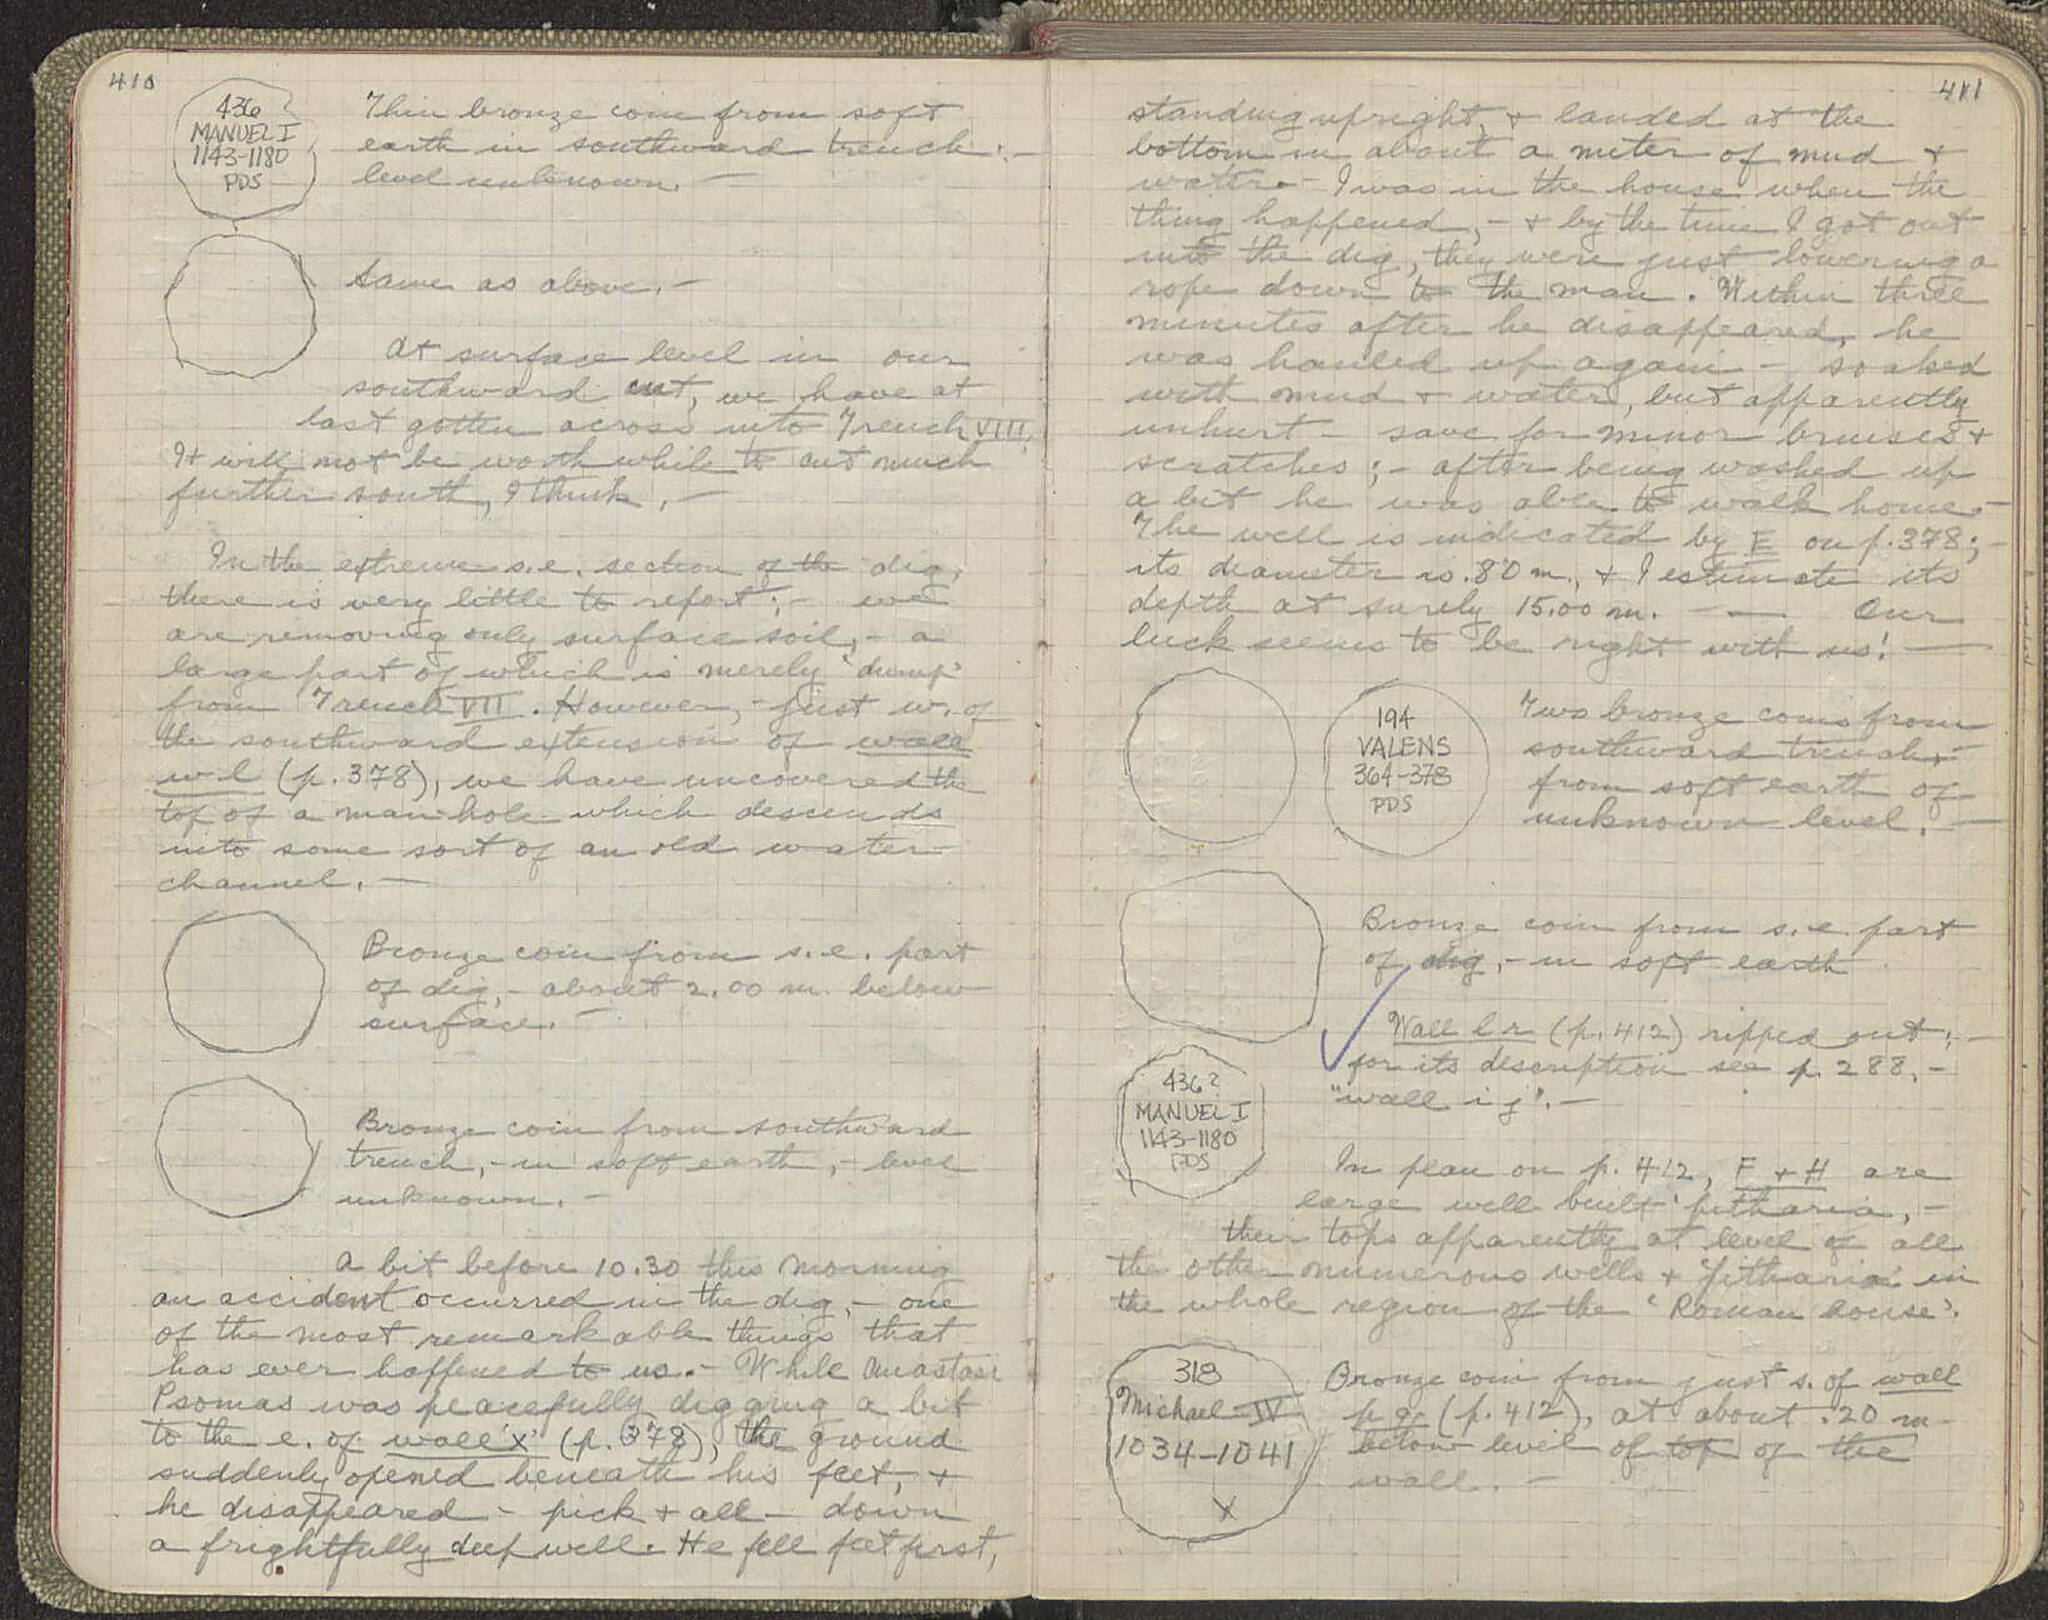 410
436
MANUEL I
1143-1180
PDS
Thin bronze coin from soft
earth in southward trench:-
level unknown.-
Same as above.-
At surface level in our
southward cut, we have at
last gotten across into Trench VIII.
It will not be worth while to cut much
further south, I think.-
In the extreme s.e. section of the dig,
there is very little to report;- we
are removing only surface soil,- a
large part of which is merely 'dump'
from Trench VII. However,- just w. of
the southward extension of wall
wl (p.378), we have uncovered the
top of a man-hole which descends
into some sort of an old water-
channel.-
Bronze coin from s.e. part
of dig,- about 2.00 m. below
surface.-
Bronze coin from southward
trench,- in soft earth,- level
unknown.-
A bit before 10.30 this morning
an accident occurred in the dig,- one
of the most remarkable things that
has ever happened to us.- While Anastasi
Psomas was peacefully digging a bit
to the e. of wall 'x' (p.378), the ground
suddenly opened beneath his feet, +
he disappeared - pick + all - down
a frightfully deep well. He fell feet first,
411
standing upright, + landed at the
bottom in about a meter of mud +
water.- I was in the house when the
thing happened,- + by the time I got out
into the dig, they were just lowering a
rope down to the man. Within three
minutes after he disappeared, he
was hauled up again - soaked
with mud + water, but apparently
unhurt - save for minor bruises +
scratches;- after being washed up
a bit he was able to walk home.-
The well is indicated by E on p.378;-
its diameter is .80 m., + I estimate its
depth at surely 15.00 m. - — Our
luck seems to be right with us! —
194
VALENS
364-378
PDS
Two bronze coins from
southward trench,-
from soft earth of
unknown level.-
Bronze coin from s.e. part
of dig,- in soft earth
Wall lr (p.412) ripped out;-
for its description see p.288,-
"wall ij".-
436?
MANUEL I
1143-1180
PDS
In plan on p.412, F + H are
large well built 'pitharia,-
their tops apparently at level of all
the other numerous wells + 'pitharia' in
the whole region of the 'Roman House'.
318
Michael IV
1034-1041
X
Bronze coin from just s. of wall
pq (p.412), at about .20 m
below level of top of the
wall.-